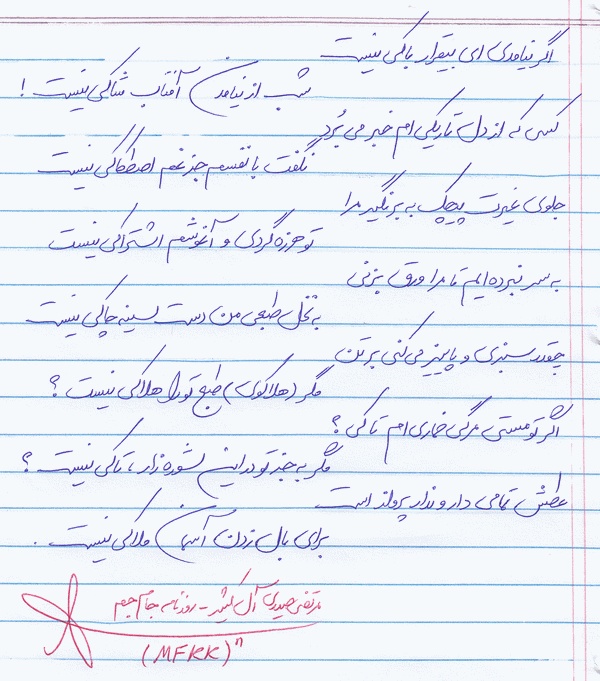 اگر نیامدی ای بیقرار باکی نیست
شب از نیامدن آفتاب شاکی نیست !
کسی که از دل تاریکی ام خبر می بُرد
نگفت با نفسم جز غم اصطکاکی نیست
جلوی غیرت پیچک به بر نگیر مرا
تو هرزه گردی و آغوشم اشتراکی نیست
به سر نبرده ایم تا مرا ورق بزنی
به نخل طبعی من دست سینه چاکی نیست
چقدر سبزی و پاییز می کنی بر تن
مگر (هلاکوی) طبع تو را هلاکی نیست ؟
اگر تو مستی مرگی خماری ام تا کی ؟
مگر به جز تو در این شوره زار ، تاکی نیست ؟
عطش تمامی دار و ندار پرواز است
برای بال زدن آسمان ملاکی نیست .
مرتضی حیدری آل کثیر - روزنامه جام جم
(MFKK)ⁿ